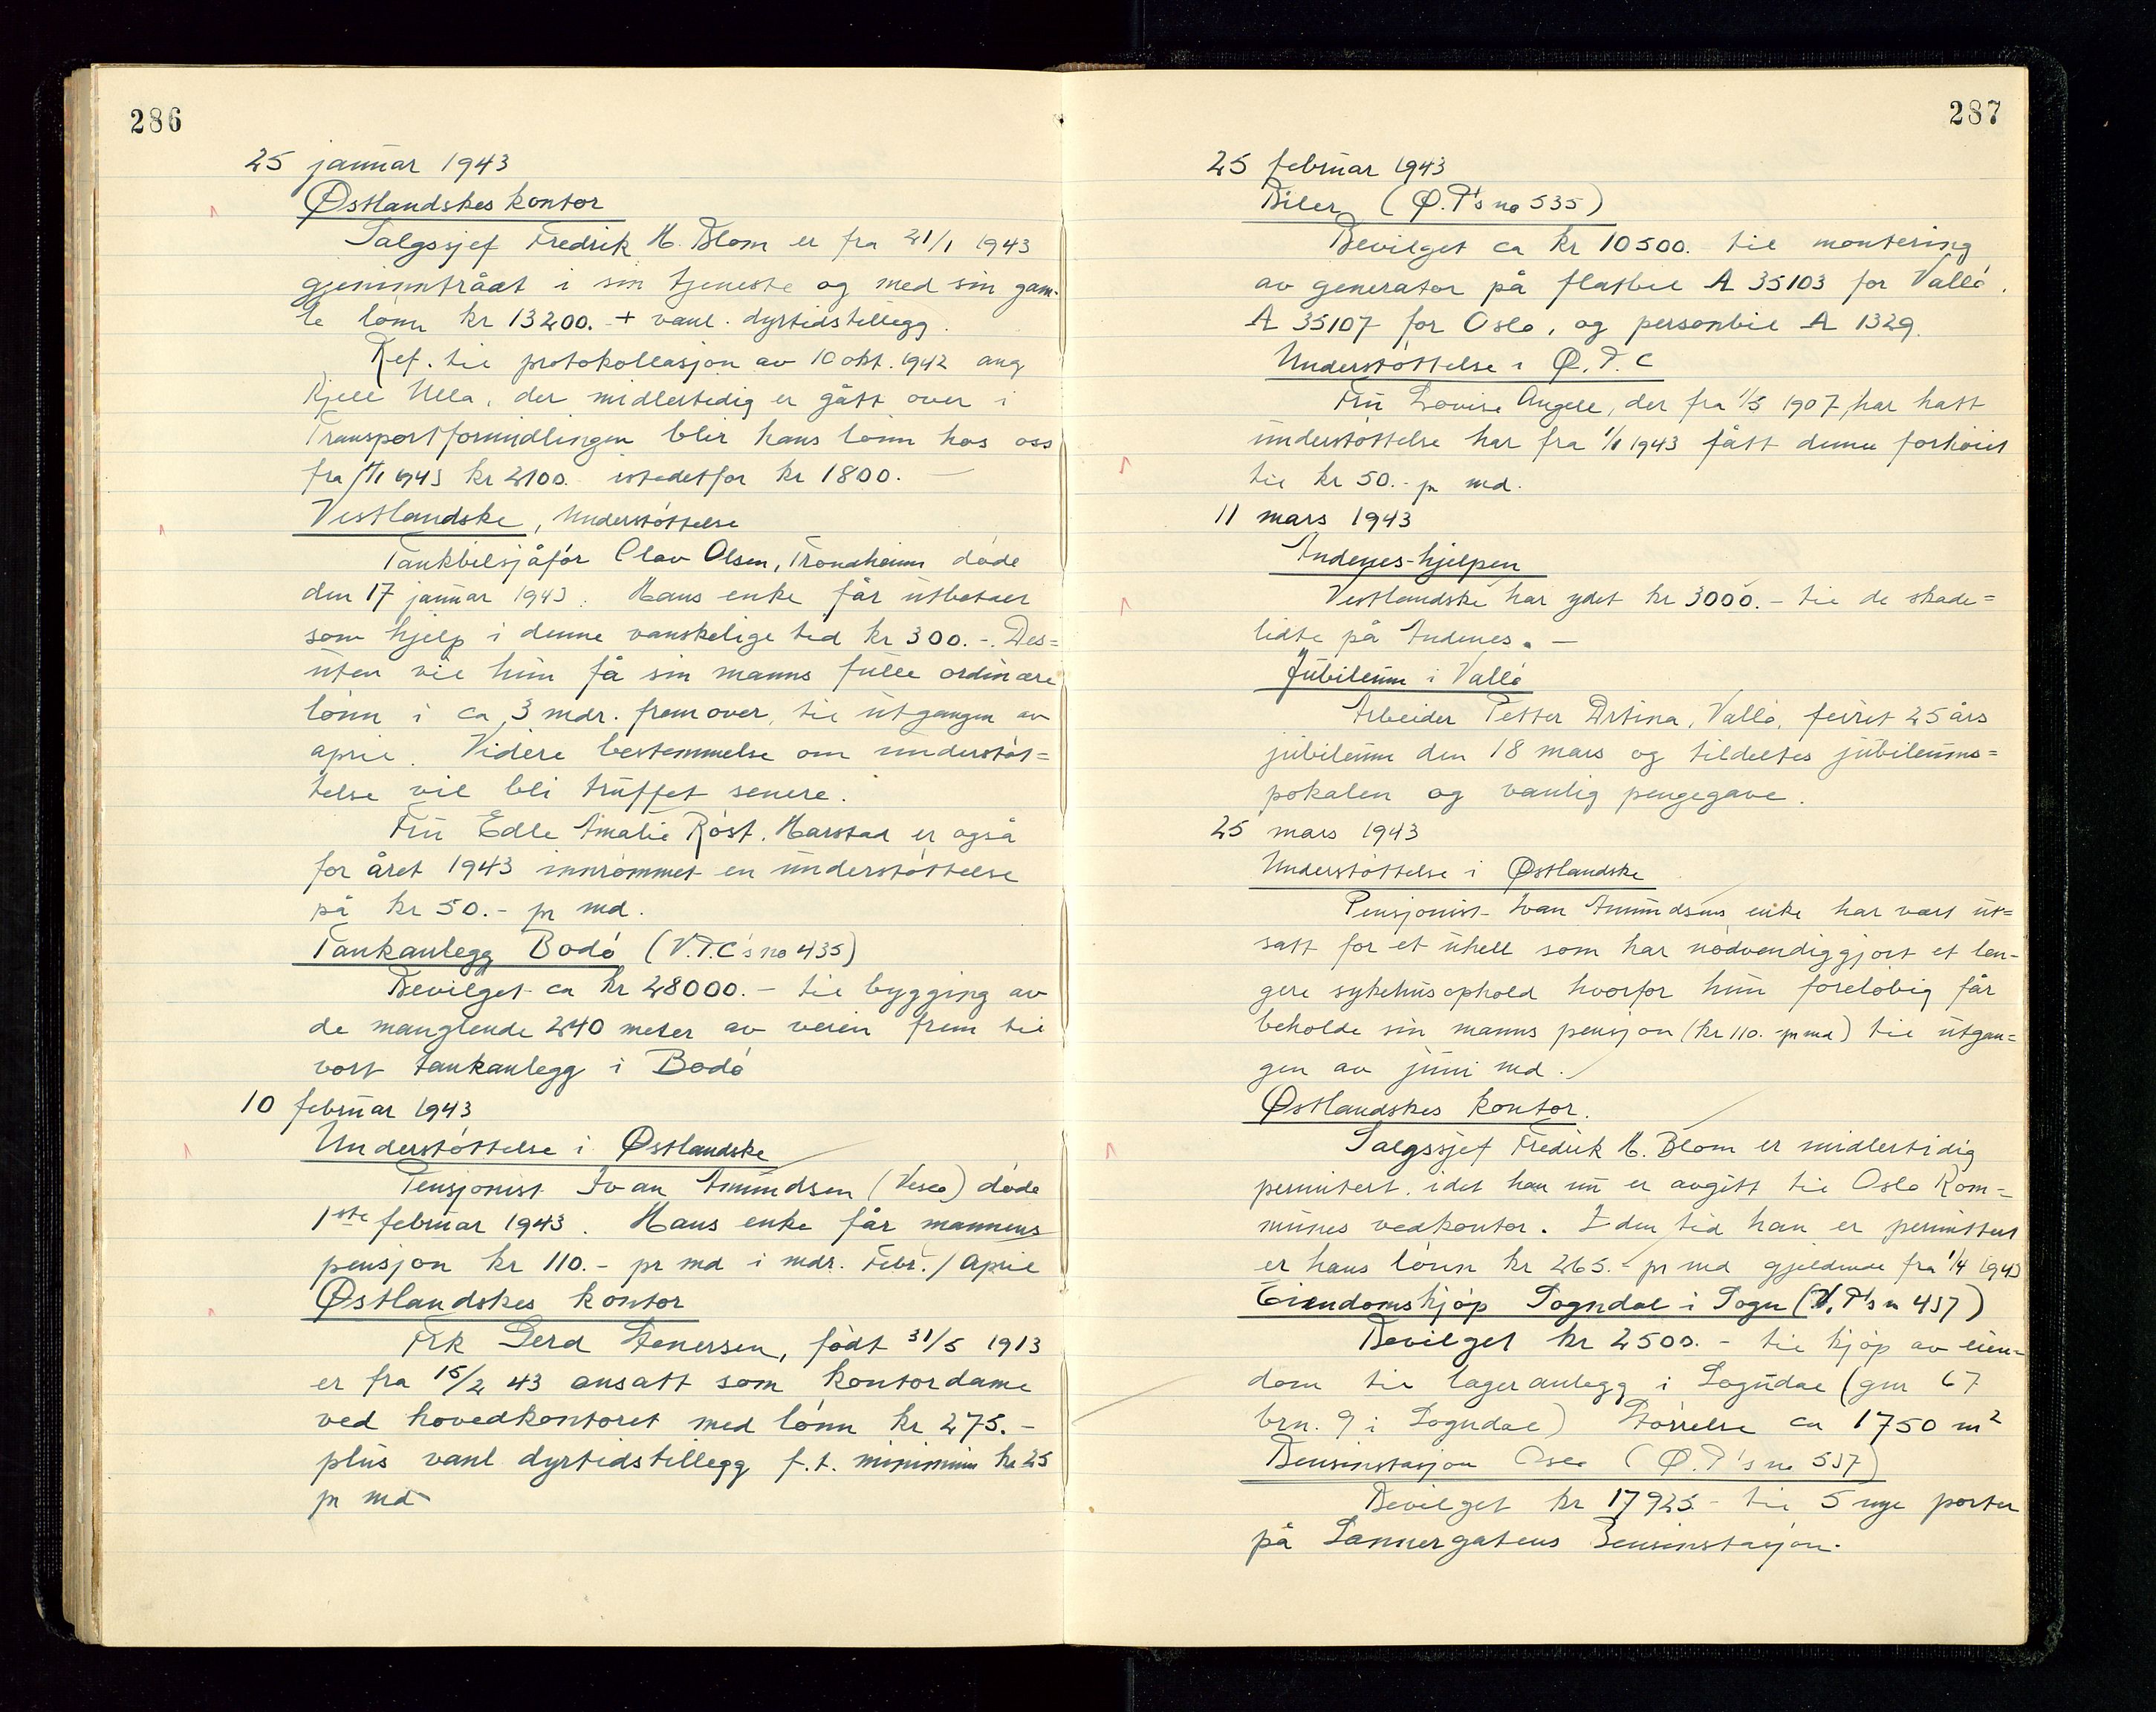 286
25 januar 1943
Østlandskes kontor
Salgssjef Fredrik H. Blom er fra 21/1 1943
gjeninntrådt i sin tjeneste og med sin gam-
le lønn kr 13200.- + vanl. dyrtidstillegg.
Ref. til protokollasjon av 10 okt. 1942 ang
Kjell Ulla, der midlertidig er gått over i
Transportformidlingen blir hans lønn hos oss
fra 1/1 1943 kr 2100.- istedetfor kr 1800.-
Vestlandske, Understøttelse
Tankbilsjåfør Olav Olsen, Trondheim døde
den 17 januar 1943. Hans enke får utbetalt
som hjelp i denne vanskelige tid kr 300.-. Des=
uten vil hun få sin manns fulle ordinære
lønn i ca 3 mdr. fremover, til utgangen av
april. Videre bestemmelse om understøt=
telse vil bli truffet senere.
Fru Edle Amalie Røst, Harstad er også
for året 1943 innrømmet en understøttelse
på kr 50.- pr md.
Tankanlegg Bodø (V.P.C's no 435)
Bevilget ca kr 28000.- til bygging av
de manglende 240 meter av veien frem til
vort tankanlegg i Bodø
10 februar 1943
Understøttelse i Østlandske
Pensjonist Ivan Amundsen (Vesco) døde
1ste februar 1943. Hans enke får mannens
pensjon kr 110.- pr md i mdr. Febr./April
Østlandskes kontor
Frk Gerd Stenersen, født 31/5 1913
er fra 15/2 43 ansatt som kontordame
ved hovedkontoret med lønn kr 275.-
plus vanl dyrtidstillegg f.t. minimum kr 25
pr md
287
25 februar 1943
Biler (Ø.P's no 535)
Bevilget ca kr 10500.- til montering
av generator på flatbil A 35103 for Vallø,
A 35107 for Oslo, og personbil A 1329.
Understøttelse i Ø.P.C
Fru Lovise Angell, der fra 1/5 1907 har hatt
understøttelse har fra 1/1 1943 fått denne forhøiet
til kr 50.- pr md.
11 mars 1943
Andenes-hjelpen
Vestlandske har ydet kr 3000.- til de skade=
lidte på Andenes.-
Jubileum i Vallø
Arbeider Petter Drtina, Vallø, feiret 25 års
jubileum den 18 mars og tildeltes jubileums=
pokalen og vanlig pengegave.
25 mars 1943
Understøttelse i Østlandske
Pensjonist Ivan Amundsens enke har vært ut=
satt for et uhell som har nødvendiggjort et len-
gere sykehusophold hvorfor hun foreløbig får
beholde sin manns pensjon (kr 110.- pr md) til utgan=
gen av juni md.
Østlandskes kontor.
Salgssjef Fredrik H. Blom er midlertidig
permitert, idet han nu er avgitt til Oslo Kom=
munes vedkontor. I den tid han er permittert
er hans lønn kr 265.- pr md gjeldende fra 1/4 1943
Eiendomskjøp Sogndal i Sogn (V.P's n 437)
Bevilget kr 2500.- til kjøp av eien=
dom til lageranlegg i Sogndal (gnr 67
brn. 9 i Sogndal) Størrelse ca 1750 m²
Bensinstasjon Oslo (Ø.P's no 537)
Bevilget kr 17925.- til 5 nye porter
på Sannergatens Bensinstasjon.